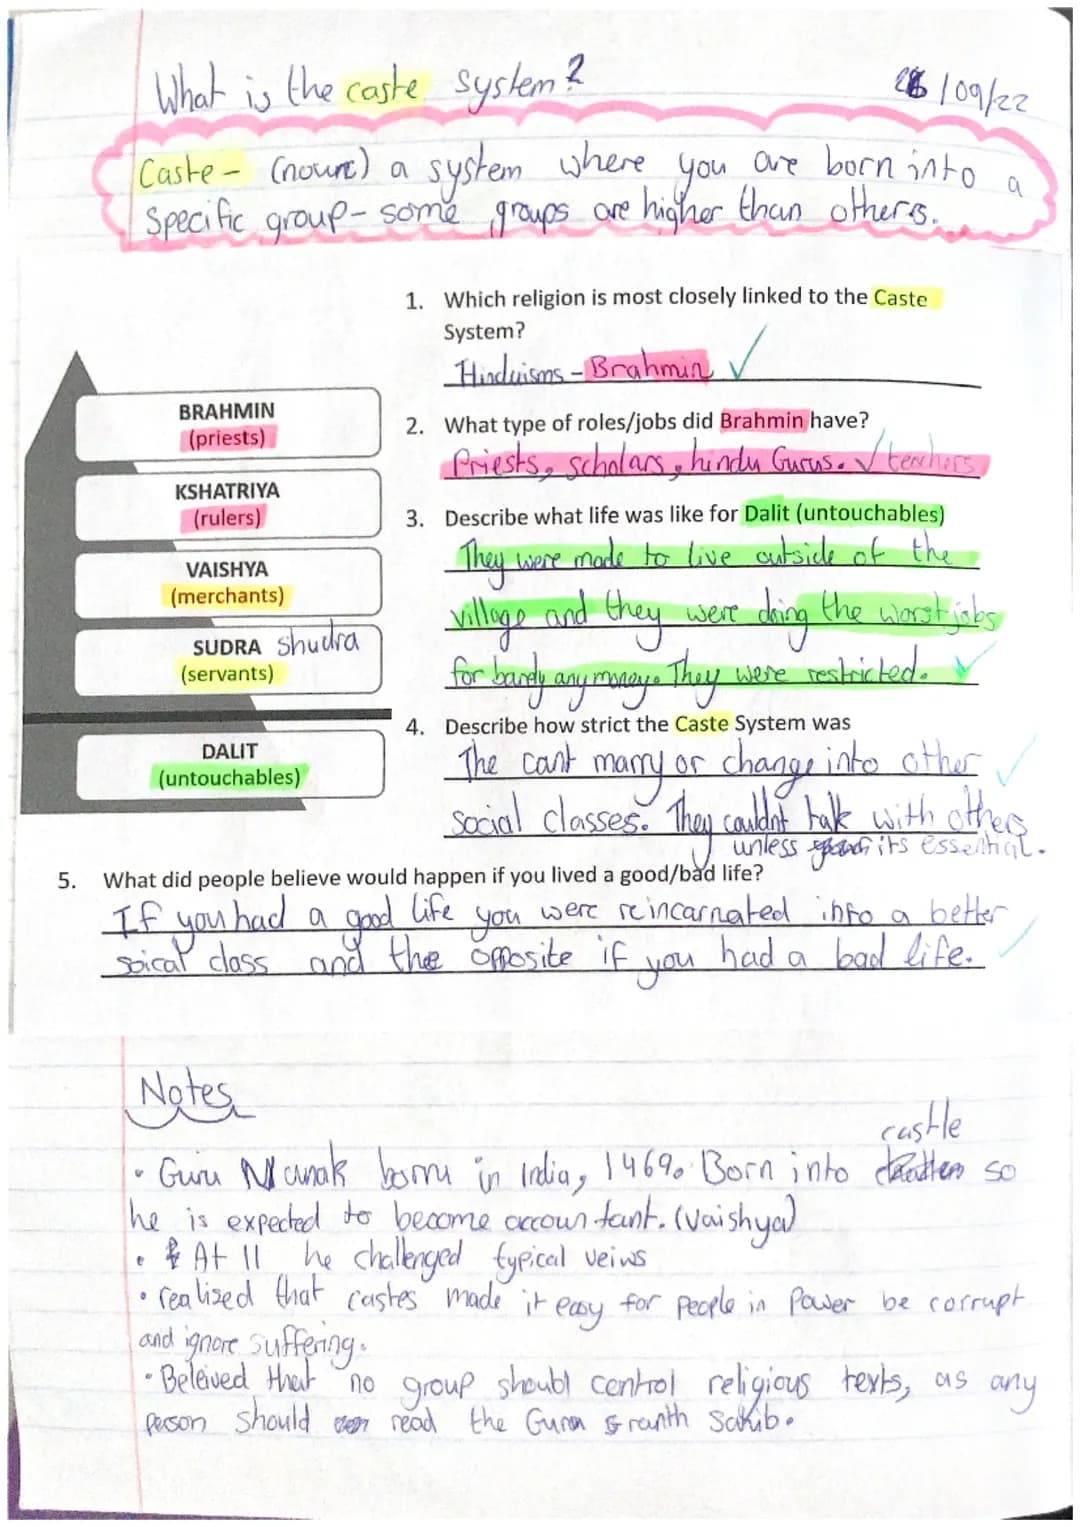 What is the caste system?
/09/22
Caste - (noun) a system where you are born into a
Specific group - some groups are higher than others.
1. Which religion is most closely linked to the Caste
System?
Hinduisms - Brahmin ✓
BRAHMIN
(priests)
KSHATRIYA
(rulers)
VAISHYA
(merchants)
SUDRA Shudra
(servants)
DALIT
(untouchables)
2. What type of roles/jobs did Brahmin have?
Priests, scholars, hindu Gurus. ✓ teachers
3. Describe what life was like for Dalit (untouchables)
They were made to live outside of the
village and they were doing the worst jobs
for barely any money. They were restricted. ✓
4. Describe how strict the Caste System was
The cant marry or change into other ✓
social classes. They couldnt talk with others
unless its essential.
5. What did people believe would happen if you lived a good/bad life?
If you had a good life you were reincarnated into a better
soical class and the opposite if you had a bad life. ✓
Notes
castle
• Guru Nanak born in India, 1469. Born into so
he is expected to become accountant. (Vaishya)
• At 11 he challenged typical veiws
• realised that castes made it easy for people in Power be corrupt
and ignore suffering.
• Beleived that no group should control religious texts, as any
person should read the Guru Granth Sahib.